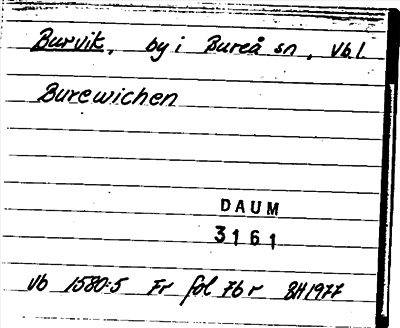 Burvik, by i Bureå sn, Vb.l.
Burewichen
DAUM
3161
Vb 1580:5 Fr fol 7b r BH 1977